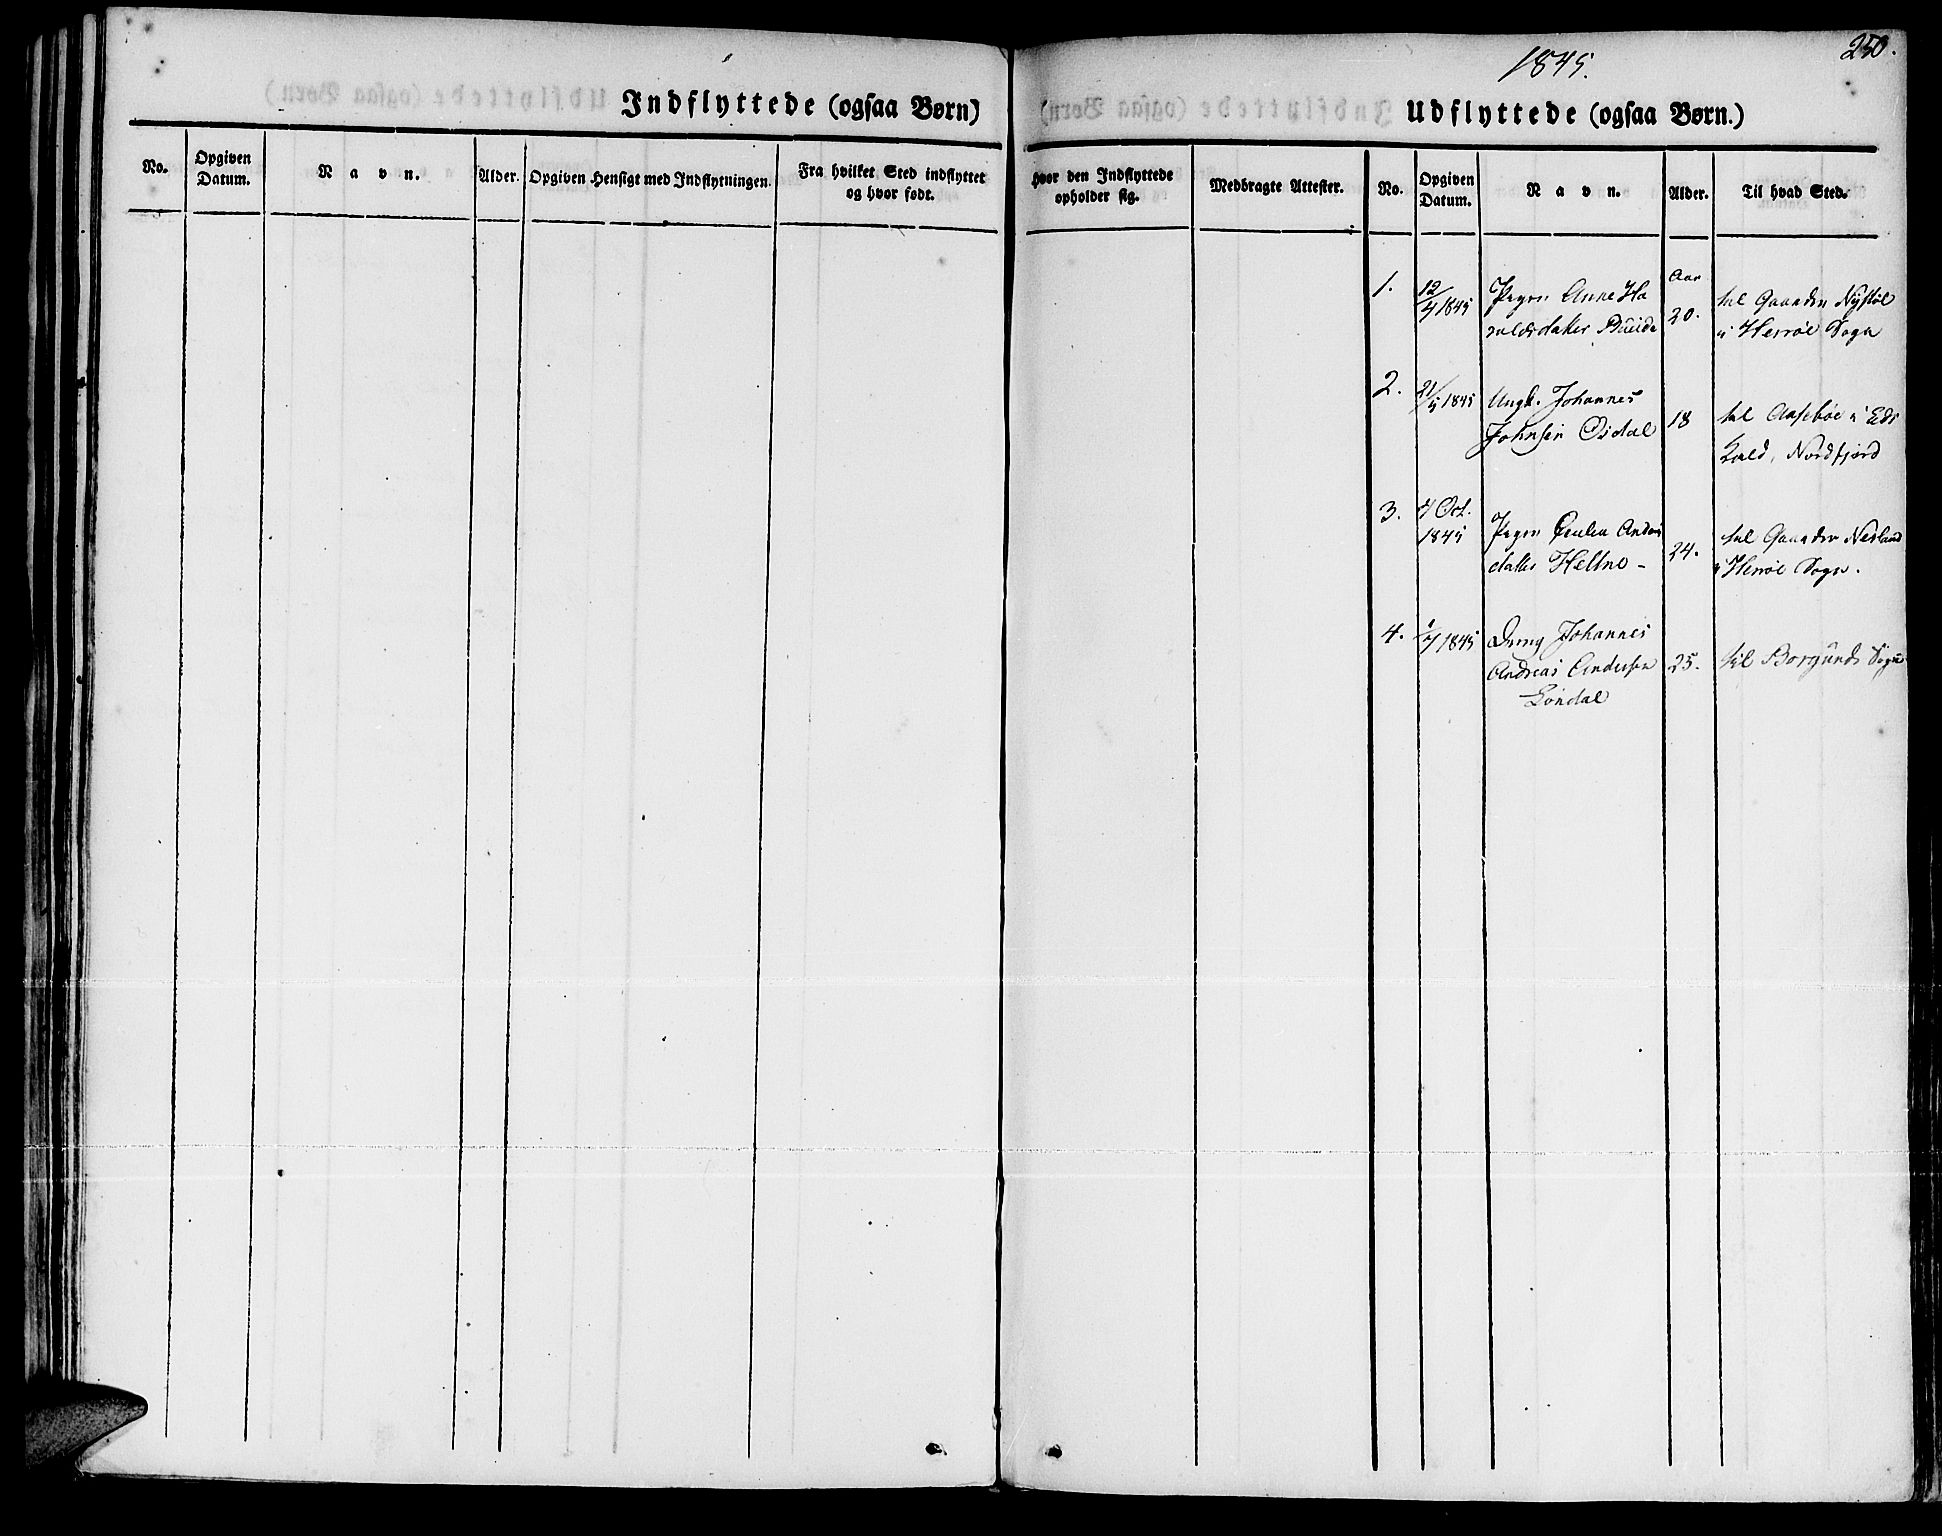 Indflyttede (ogsaa Børn)
No.
Opgiven
Datum.
Navn.
Alder.
Opgiven Hensigt med Indflytningen.
Fra hvilket Sted indflyttet
og hvor født.
1845.
250.
Udflyttede (ogsaa Børn.)
Hvor den Indflyttede
opholder sig.
Medbragte Attester.
No.
Opgiven
Datum.
Navn.
Alder.
Til hvad Sted.
1.
12/4 1845
Pigen Anne Ha
raldsdatter
Aar
20.
til Gaarden Nystøl
i Herrøe Sogn
2.
21/5 1845
Ungk. Johannes
Johnsen Osdal
18
til Aasebøe i Eds
Nordfjord
3.
4 Oct.
1845
Pigen
datter Heltne -
24.
til Gaarden Nesland
i Herrøe Sogn.
4.
1845
Dreng Johannes
Andreas Andersen
Londal
25.
til Borgunds Sogn